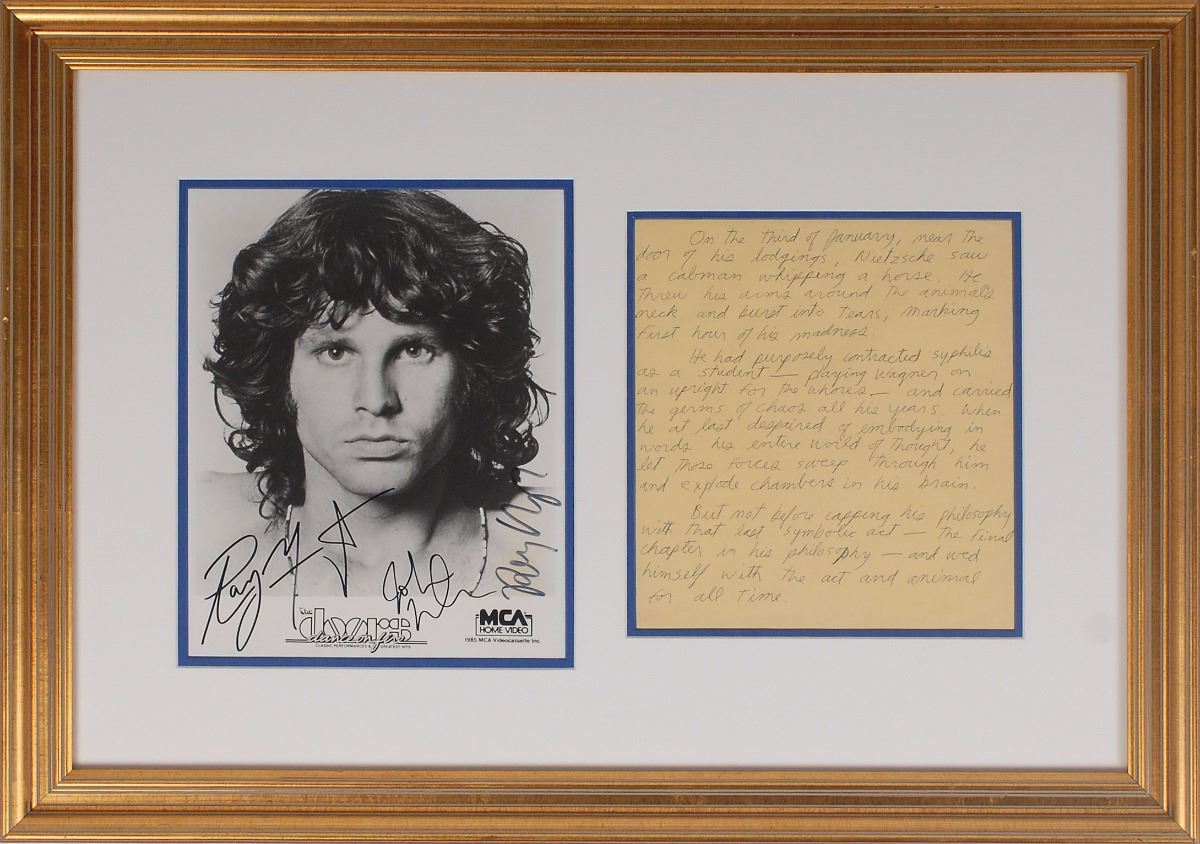 The
doors
dance on fire
CLASSIC PERFORMANCES & GREATEST HITS
MCA
HOME VIDEO
1985 MCA Videocassette Inc.
On the third of January, near the
door of his lodgings, Nietzsche saw
a cabman whipping a horse. He
threw his arms around the animal's
neck and burst into tears, marking
first hour of his madness.
He had purposely contracted syphilis
as a student — playing Wagner on
an upright for the whores — and carried
the germs of chaos all his years. When
he at last despaired of embodying in
words his entire world of thought, he
let those forces sweep through him
and explode chambers in his brain.
But not before capping his philosophy
with that last symbolic act — the final
chapter in his philosophy — and wed
himself with the act and animal
for all time.